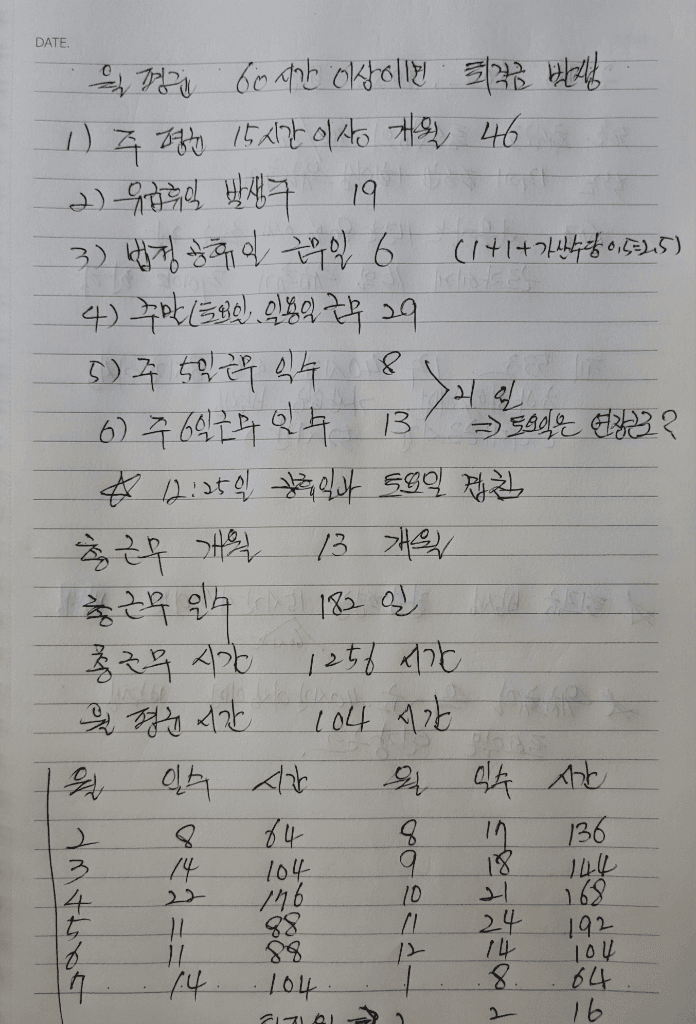 DATE.
월 평균 60시간 이상이면 퇴직금 발생
1) 주 평균 15시간 이상 개월 46
2) 유급휴일 발생주 19
3) 법정 공휴일 근무일 6 (1+1+가산수당0.5=2.5)
4) 주말(토요일, 일용일 근무 29
5) 주 5일근무 일수 8
6) 주 6일근무 일수 13 > 21일 ⇒ 토요일은 연장근로?
☆ 12:25일 공휴일과 토요일 겹침
총 근무 개월 13 개월
총 근무 일수 182 일
총 근무 시간 1256 시간
월 평균 시간 104 시간
월 일수 시간 월 일수 시간
2 8 64 8 17 136
3 14 104 9 18 144
4 22 176 10 21 168
5 11 88 11 24 192
6 11 88 12 14 104
7 14 104 1 8 64
2 2 16